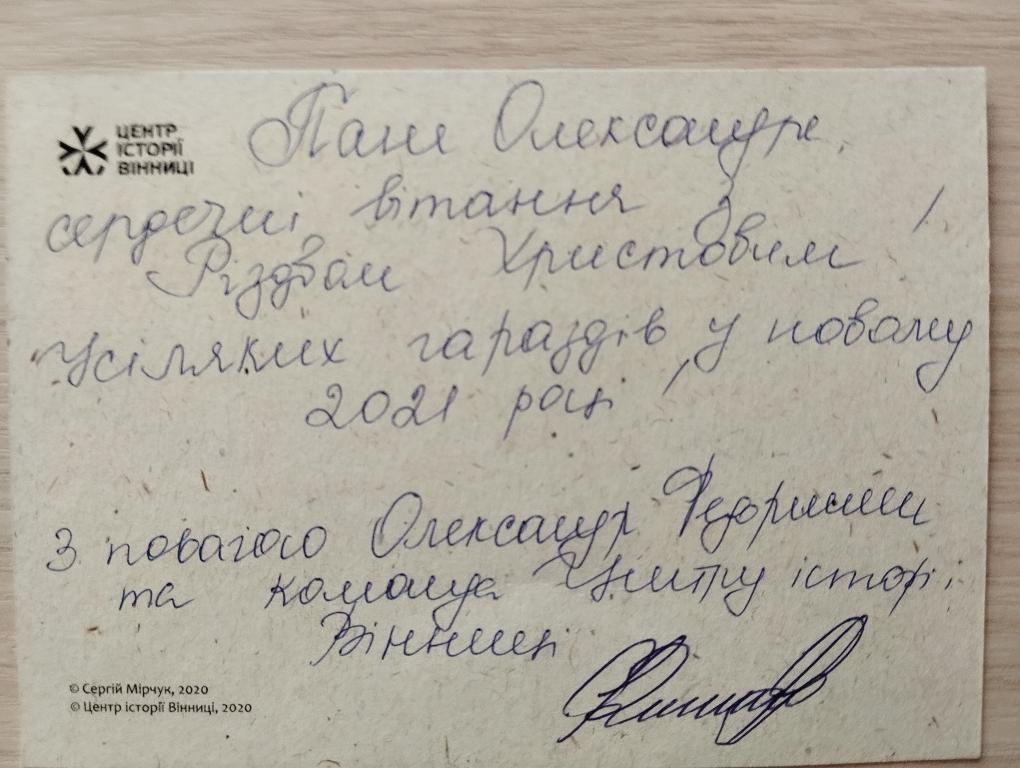 ЦЕНТР
ІСТОРІЇ
ВІННИЦІ
Пане Олександре,
сердечні вітання з
Різдвом Христовим!
Усіляких гараздів у новому
2021 році!
З повагою Олександр Федоришен
та команда Центру історії
Вінниці
© Сергій Мірчук, 2020
© Центр історії Вінниці, 2020